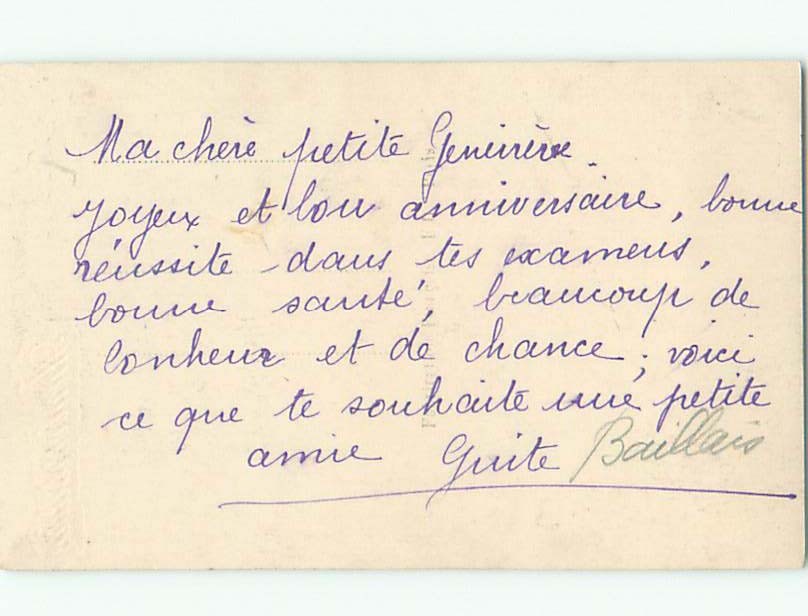 Ma chère petite Geneviève.
Joyeux et bon anniversaire, bonne
réussite dans tes examens,
bonne santé, beaucoup de
bonheur et de chance ; voici
ce que te souhaite une petite
amie Guite Baillais